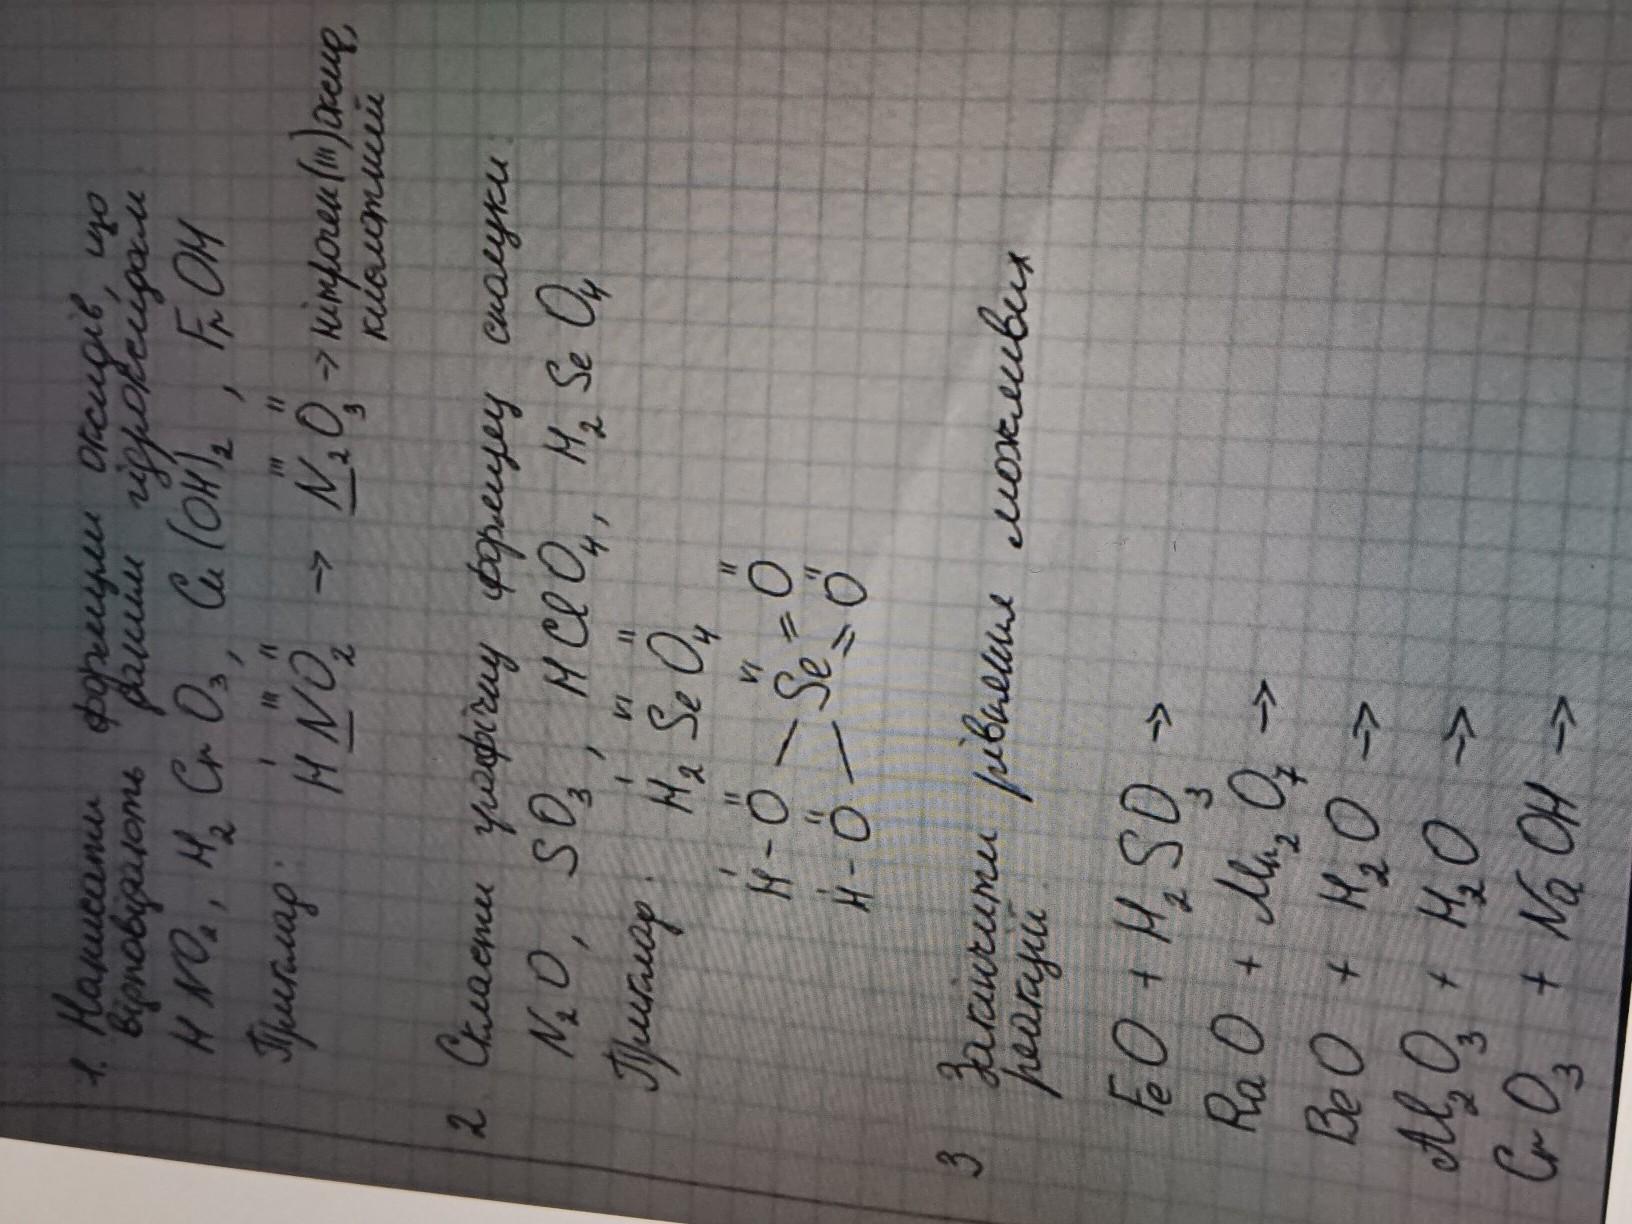 1. Написати формули оксидів, що
відповідають даним гідроксидам.
HNO₂, H₂CrO₃, Cu(OH)₂, FrOH
Приклад: HᴵNᴵᴵᴵO₂ᴵᴵ → N₂ᴵᴵᴵO₃ᴵᴵ → нітроген(III)оксид,
кислотний
2. Скласти графічну формулу сполуки.
N₂O, SO₃, HClO₄, H₂SeO₄
Приклад: H₂ᴵSeⱽᴵO₄ᴵᴵ
Hᴵ-Oᴵᴵ\Seⱽᴵ=Oᴵᴵ
Hᴵ-Oᴵᴵ/ =Oᴵᴵ
3 Закінчити рівняння можливих
реакцій.
FeO + H₂SO₃ →
RaO + Mn₂O₇ →
BeO + H₂O →
Al₂O₃ + H₂O →
CrO₃ + NaOH →